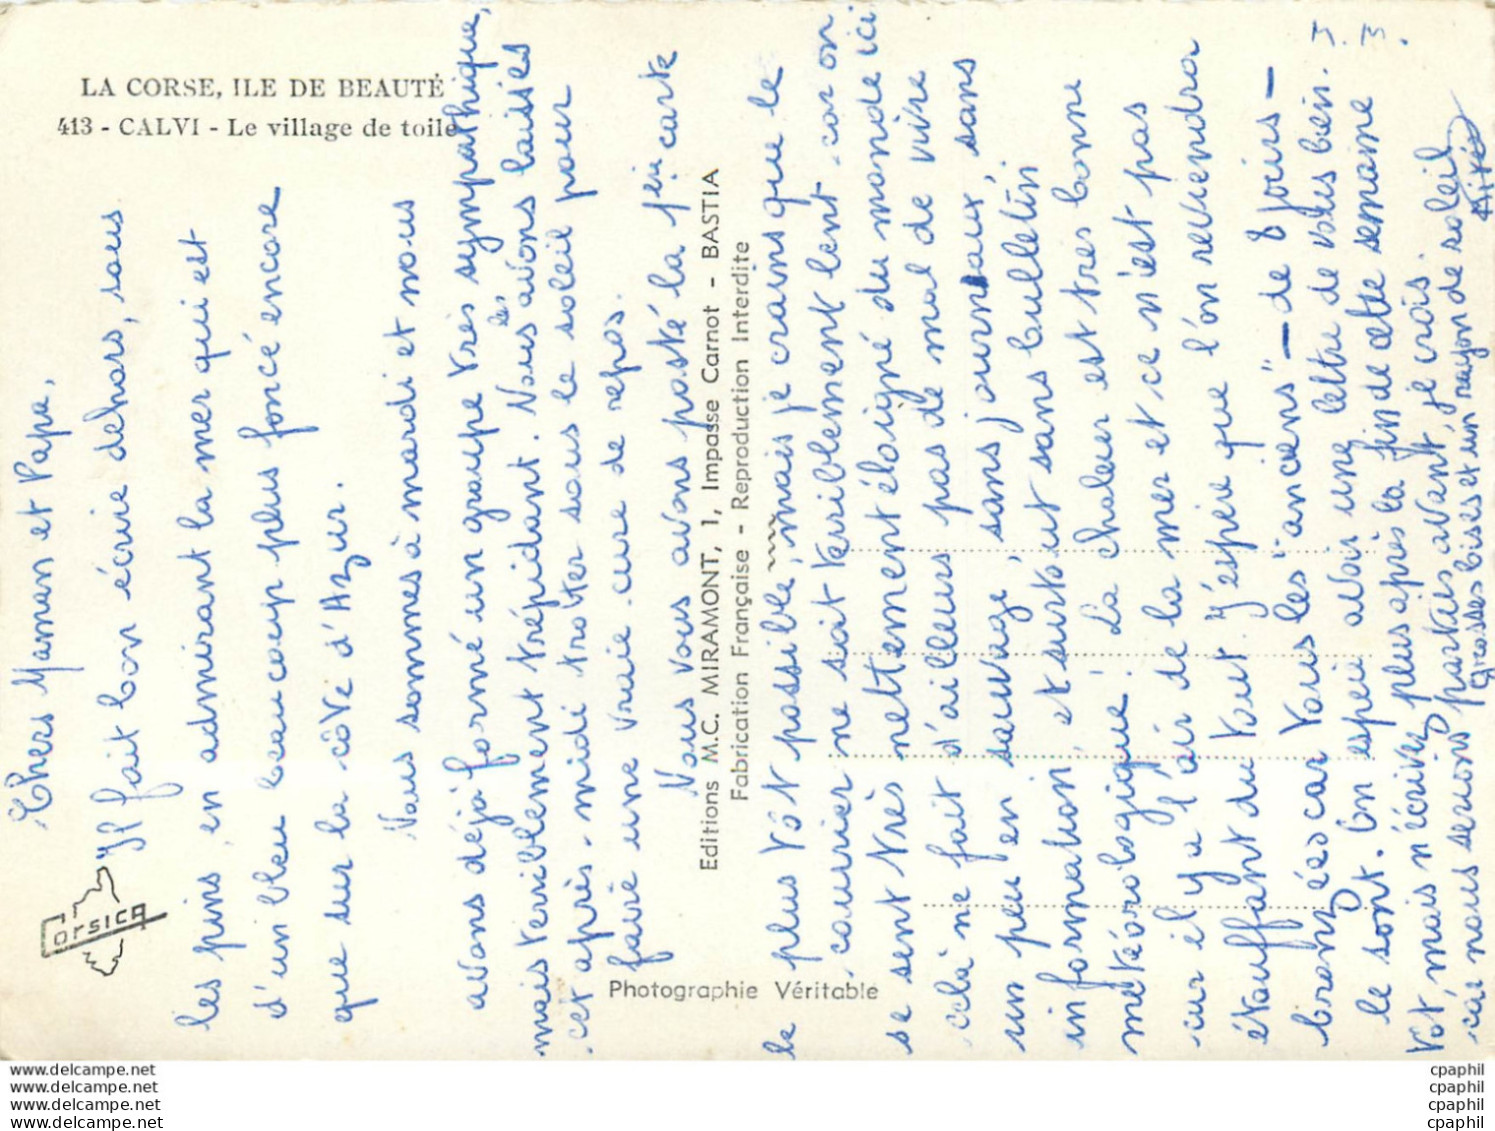 LA CORSE, ILE DE BEAUTÉ
413 - CALVI - Le village de toile
Corsica
Chers Maman et Papa,
Il fait bon écrire dehors, sous
les pins, en admirant la mer qui est
d'un bleu beaucoup plus foncé encore
que sur la côte d'Azur.
Nous sommes à mardi et nous
avons déjà formé un groupe très sympathique,
mais terriblement trépidant. Nous les avons laissés
cet après-midi trotter sous le soleil pour
faire une vraie cure de repos.
Nous vous avons posté la 1èr carte
Editions M.C. MIRAMONT, 1, Impasse Carnot - BASTIA
Fabrication Française - Reproduction Interdite
Photographie Véritable
le plus tôt possible, mais je crains que le
courrier ne soit terriblement lent car on
se sent très nettement éloigné du monde ici.
cela ne fait d'ailleurs pas de mal de vivre
un peu en sauvage, sans journaux, sans
information, et surtout sans bulletin
météorologique! La chaleur est très bonne
car il y a l'air de la mer et ce n'est pas
étouffant du tout. J'espère que l'on reviendra
bronzées car tous les "anciens" - de 8 jours -
le sont. On espère avoir une lettre de vous bien
tôt, mais n'écrivez plus après la fin de cette semaine
car nous serions partais avant, je crois.
Grosses bises et un rayon de soleil
www.delcampe.net
www.delcampe.net
www.delcampe.net
www.delcampe.net
cpaphil
cpaphil
cpaphil
cpaphil